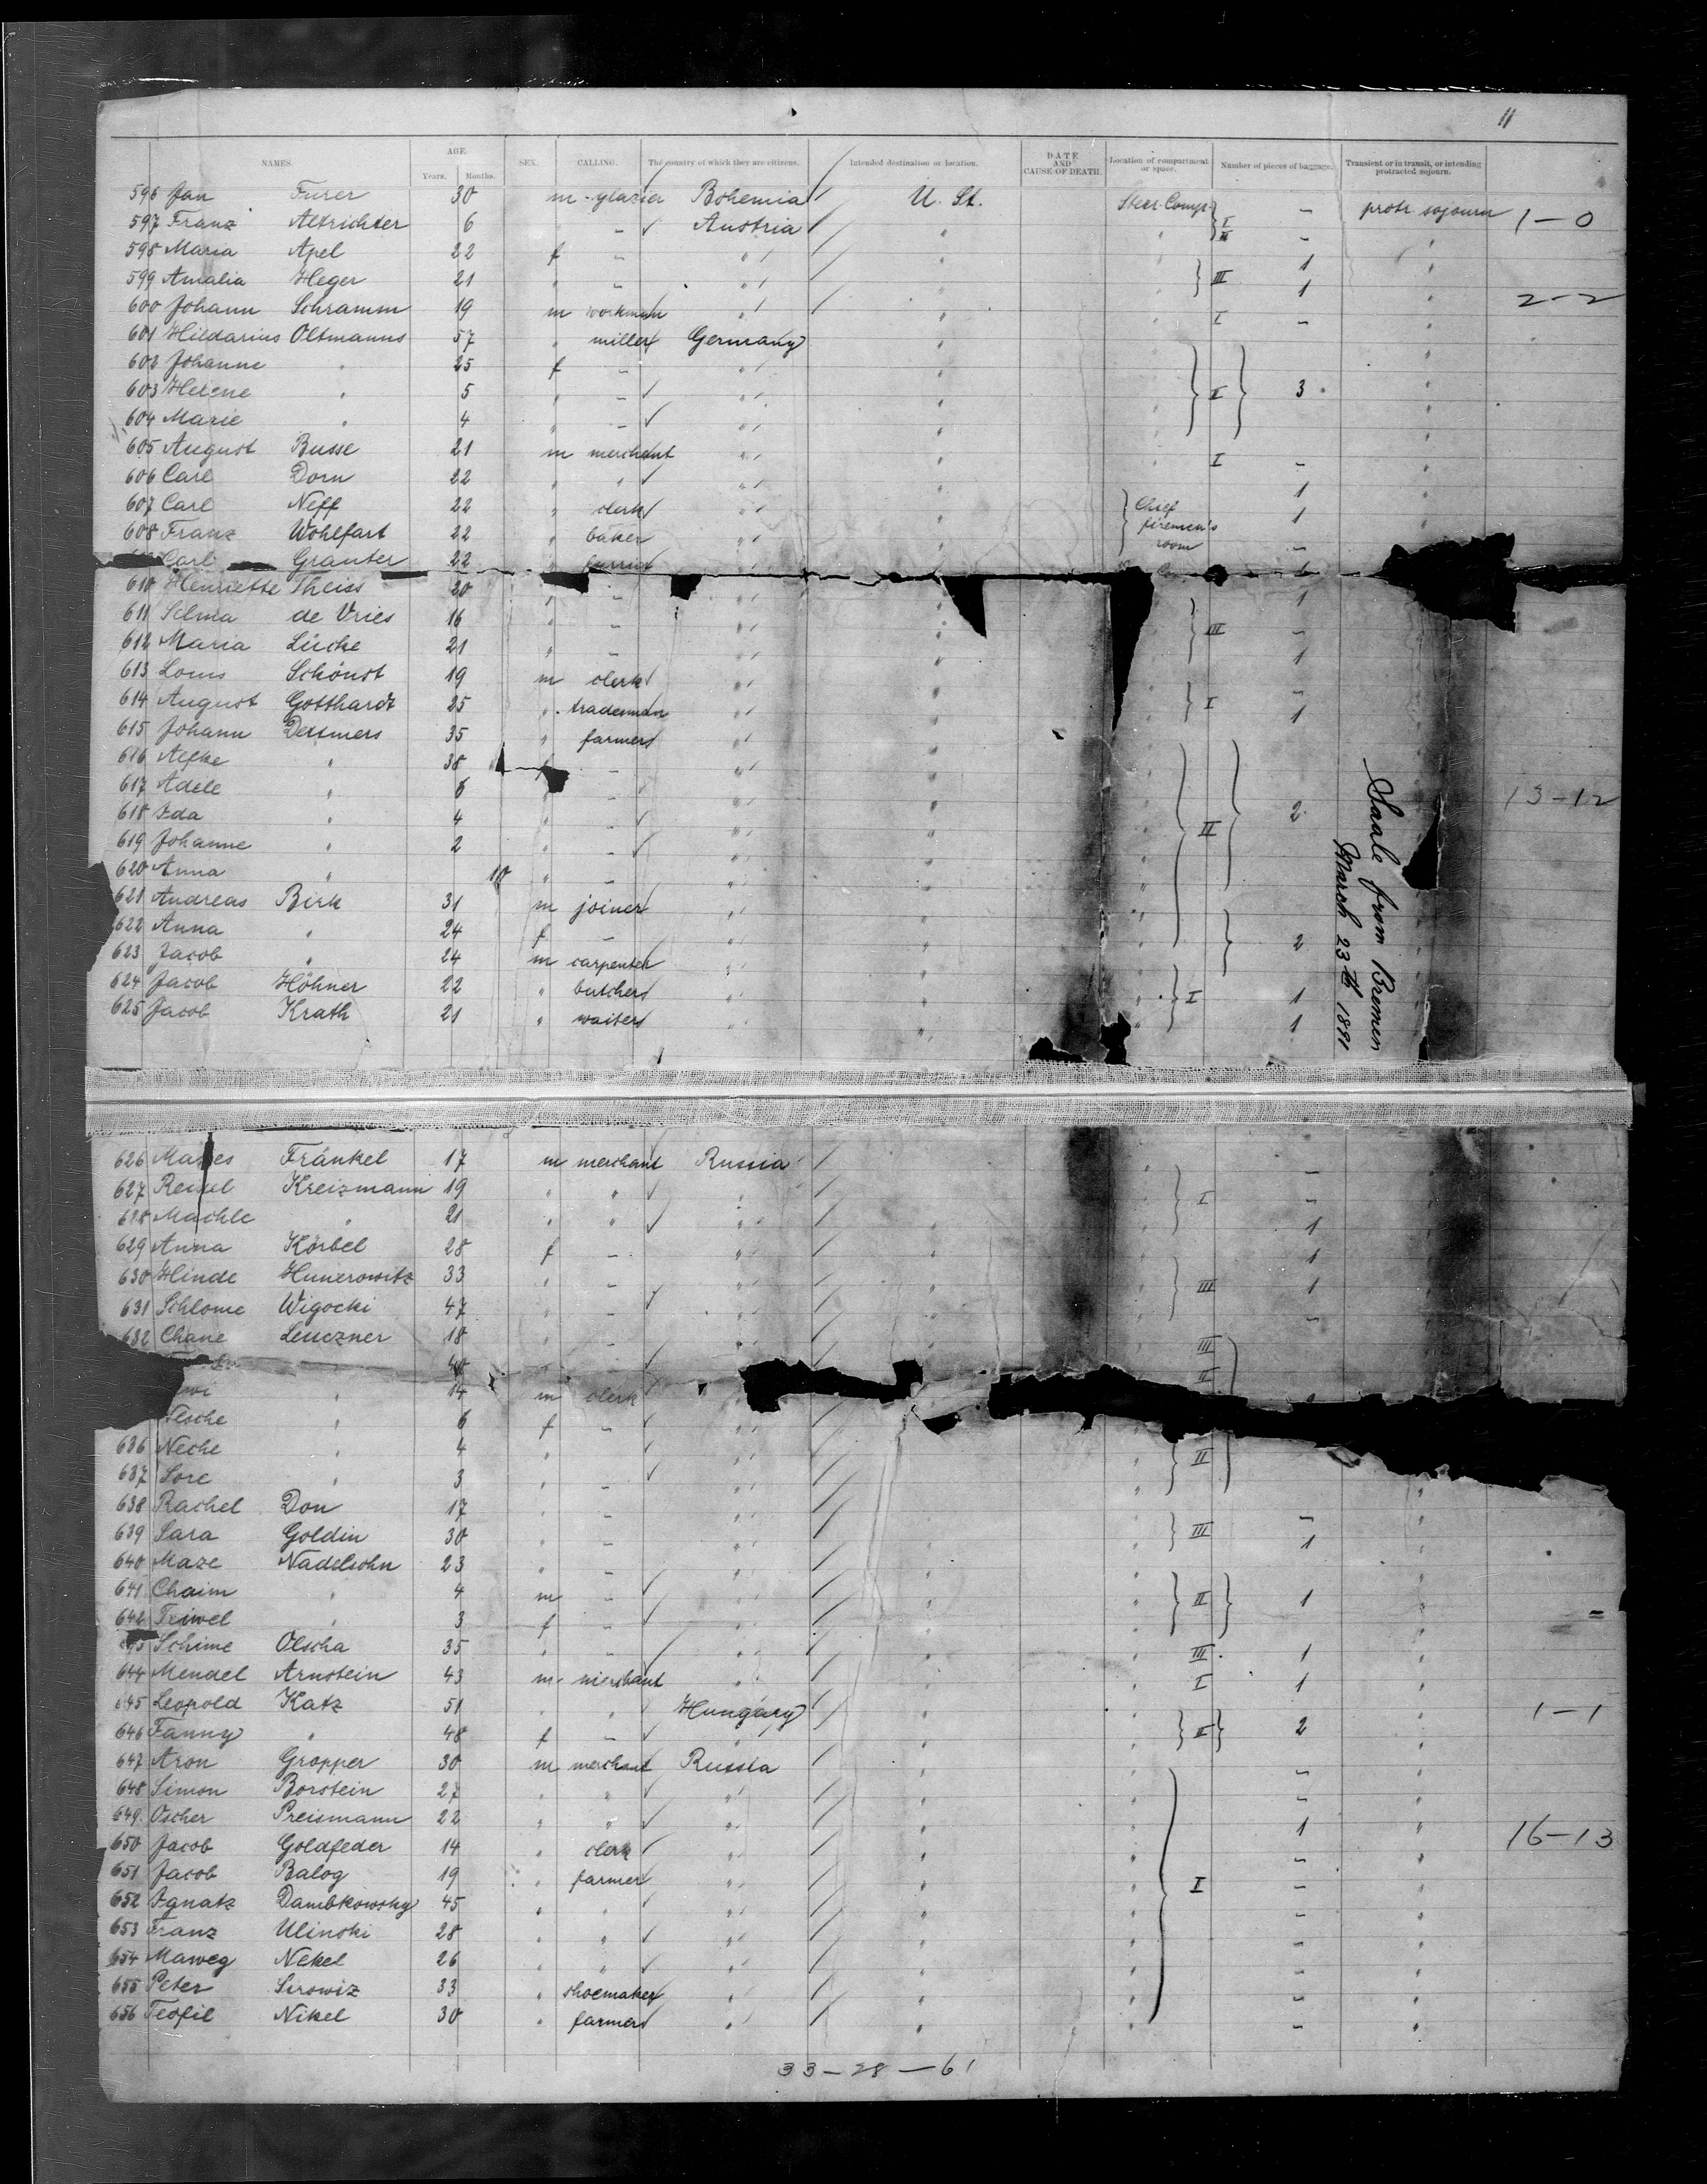 11
NAMES. AGE. Years. Months. SEX. CALLING. The country of which they are citizens. Intended destination or location. DATE AND CAUSE OF DEATH. Location of compartment or space. Number of pieces of baggage. Transient or in transit, or intending protracted sojourn.
596 Jan Furer 30 m glazier Bohemia U. St. Steer Comp. I - protr sojourn
597 Franz Altrichter 6 " - Austria " " II - " 1-0
598 Maria Apel 22 f - " " " 1 "
599 Amalia Heger 21 " - " " " III 1 "
600 Johann Schramm 19 m workman " " " I - " 2-2
601 Hildarius Oltmanns 57 " miller Germany " "
602 Johanne " 25 f - " " "
603 Helene " 5 " - " " " I 3 "
604 Marie " 4 " - " " " "
605 August Busse 21 m merchant " " " I - "
606 Carl Dorn 22 " " " " 1 "
607 Carl Neff 22 " clerk " " Chief firemen's room 1 "
608 Franz Wohlfart 22 " baker " " -
Carl Granter 22 "
610 Henriette Theiss 20 " - " " 1
611 Selma de Vries 16 " - " " " III -
612 Maria Lücke 21 " - " " " 1
613 Louis Schönst 19 m clerk " " " -
614 August Gotthardt 25 " tradesman " " " I 1
615 Johann Dettmers 35 " farmer " "
616 Aefke " 38 f - " "
617 Adele " 6 " - " "
618 Ida " 4 " - " " " II 2 13-12
619 Johanne " 2 " - " "
620 Anna " 10 " - " "
621 Andreas Birk 31 m joiner " "
622 Anna " 24 f - " " 2
623 Jacob " 24 m carpenter " "
624 Jacob Höhner 22 " butcher " " " I 1
625 Jacob Krath 21 " waiter " " " 1
Saale from Bremen
March 23th 1891
626 Fränkel 17 m merchant Russia -
627 Kreizmann 19 " " " I -
628 Machle " 21 " " " " 1
629 Anna Körbel 28 f - " " " 1
630 Hinde Hunerowitz 33 " - " " " III 1
631 Schlome Wigocki 47 " - " " " -
632 Chane Leuczner 18 " - " " III
40 " - II
14 m clerk
" 6 f - "
636 Neche " 4 " " " II
637 Sore " 3 " - " " "
638 Rachel Don 17 " - " " " -
639 Sara Goldin 30 " - " " " III 1 "
640 Maze Nadelsohn 23 " - " " "
641 Chaim " 4 m - " " " II 1 "
642 Teiwel " 3 f - " " " "
Schime Olscha 35 " - " " " III 1 "
644 Mendel Arnstein 43 m merchant " " " I 1 "
645 Leopold Katz 51 " " Hungary " " " 1-1
646 Fanny " 48 f - " " " II 2 "
647 Aron Gropper 30 m merchant Russia " " - "
648 Simon Borstein 27 " " " " " - "
649 Oscher Preismann 22 " " " " " 1 "
650 Jacob Goldfeder 14 " clerk " " " - " 16-13
651 Jacob Balog 19 " farmer " " " I - "
652 Ignatz Dambkowsky 45 " " " " " - "
653 Franz Ulinski 28 " " " " " - "
654 Maweg Nekel 26 " " " " " - "
655 Peter Sirowiz 33 " shoemaker " " " - "
656 Teofil Nikel 30 " farmer " " " - "
33-28-61